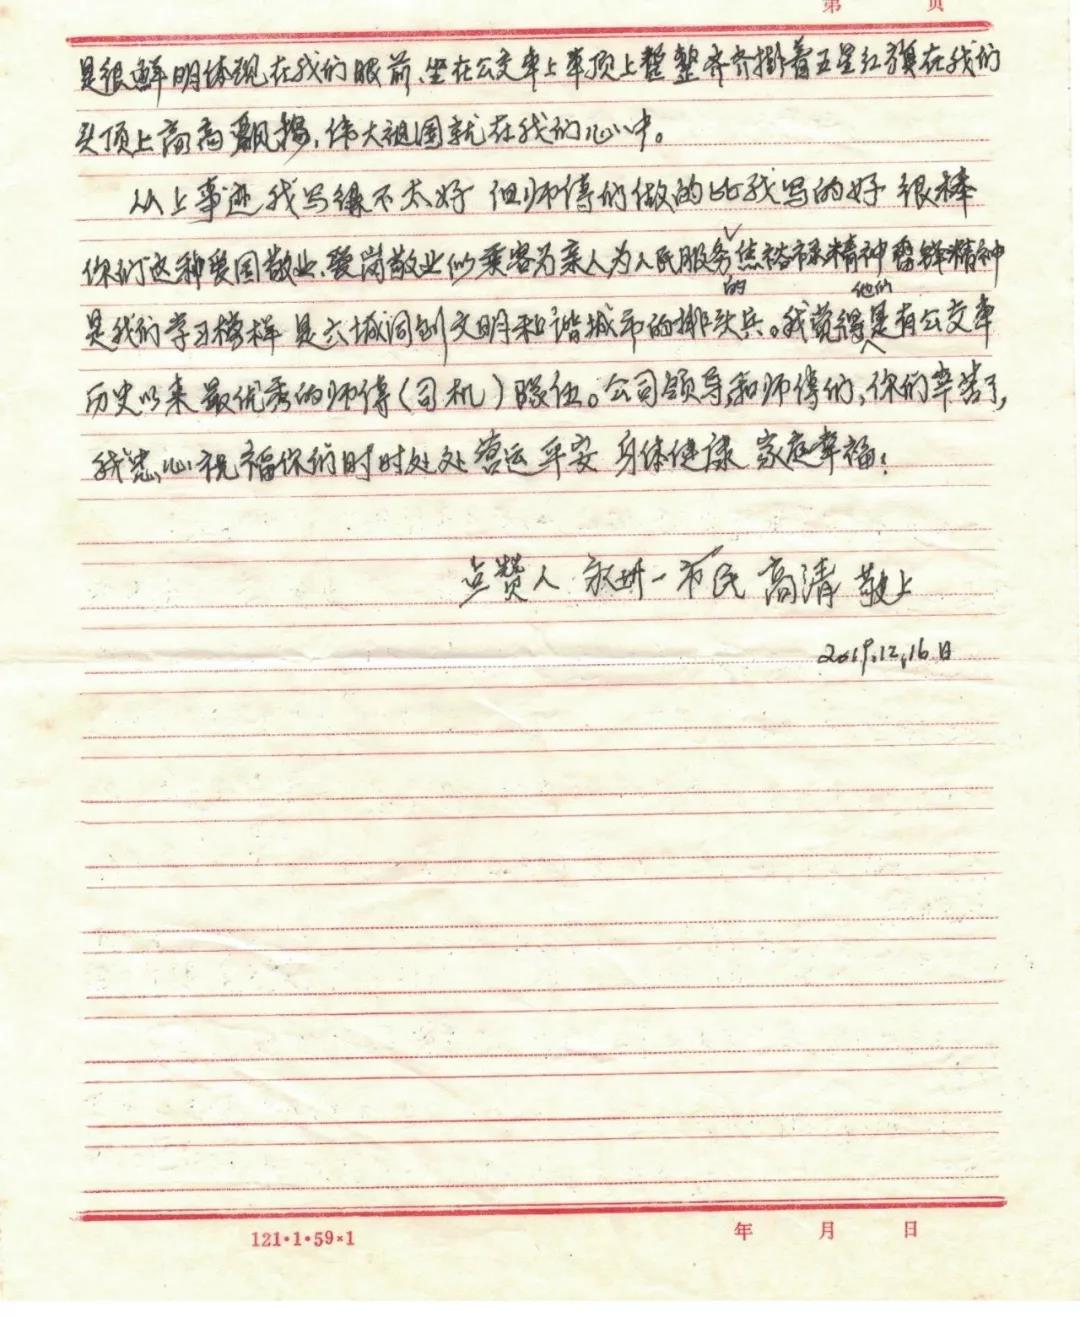 第 页
是很鲜明体现在我们眼前、坐在公交车上车顶上整整齐齐挂着五星红旗在我们
头顶上高高飘扬,伟大祖国就在我们心中。
从上事迹我写得不太好 但师傅们做的比我写的好 很棒
你们这种爱国敬业、爱岗敬业似乘客为亲人为人民服务的焦裕禄精神雷锋精神
是我们学习榜样 是六城同创文明和谐城市的排头兵。我觉得他们是有公交车
历史以来最优秀的师傅(司机)队伍。公司领导和师傅们,你们辛苦了,
我衷心祝福你们时时处处营运平安 身体健康 家庭幸福!
点赞人 永州一市民 高清 敬上
2019.12.16日
121·1·59×1
年 月 日